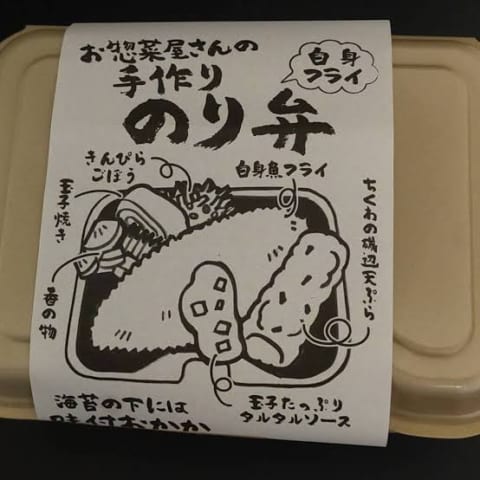 お惣菜屋さんの
手作り
のり弁
白身
フライ
きんぴら
ごぼう
白身魚フライ
玉子焼き
香の物
ちくわの磯辺天ぷら
海苔の下には
味付おかか
玉子たっぷり
タルタルソース